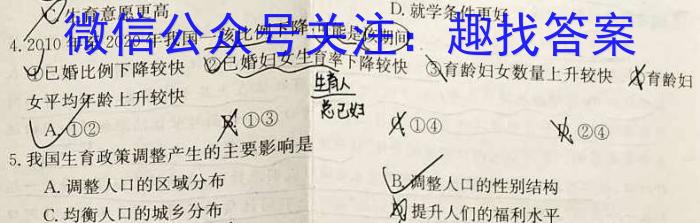 C.生育意愿更高 D.就学条件更好
微信公众号关注：趣找答案
4.2010年 2020年我国 孩比例下降,可能是该期间
①已婚比例下降较快 ②已婚妇女生育率下降较快 ③育龄妇女数量上升较快 ④育龄妇
女平均年龄上升较快
生育人
总已妇
A.①② B.①③ C.①④ D.②④
5.我国生育政策调整产生的主要影响是
A.调整人口的区域分布 B.调整人口的性别结构
C.均衡人口的城乡分布 D.提升人们的福利水平